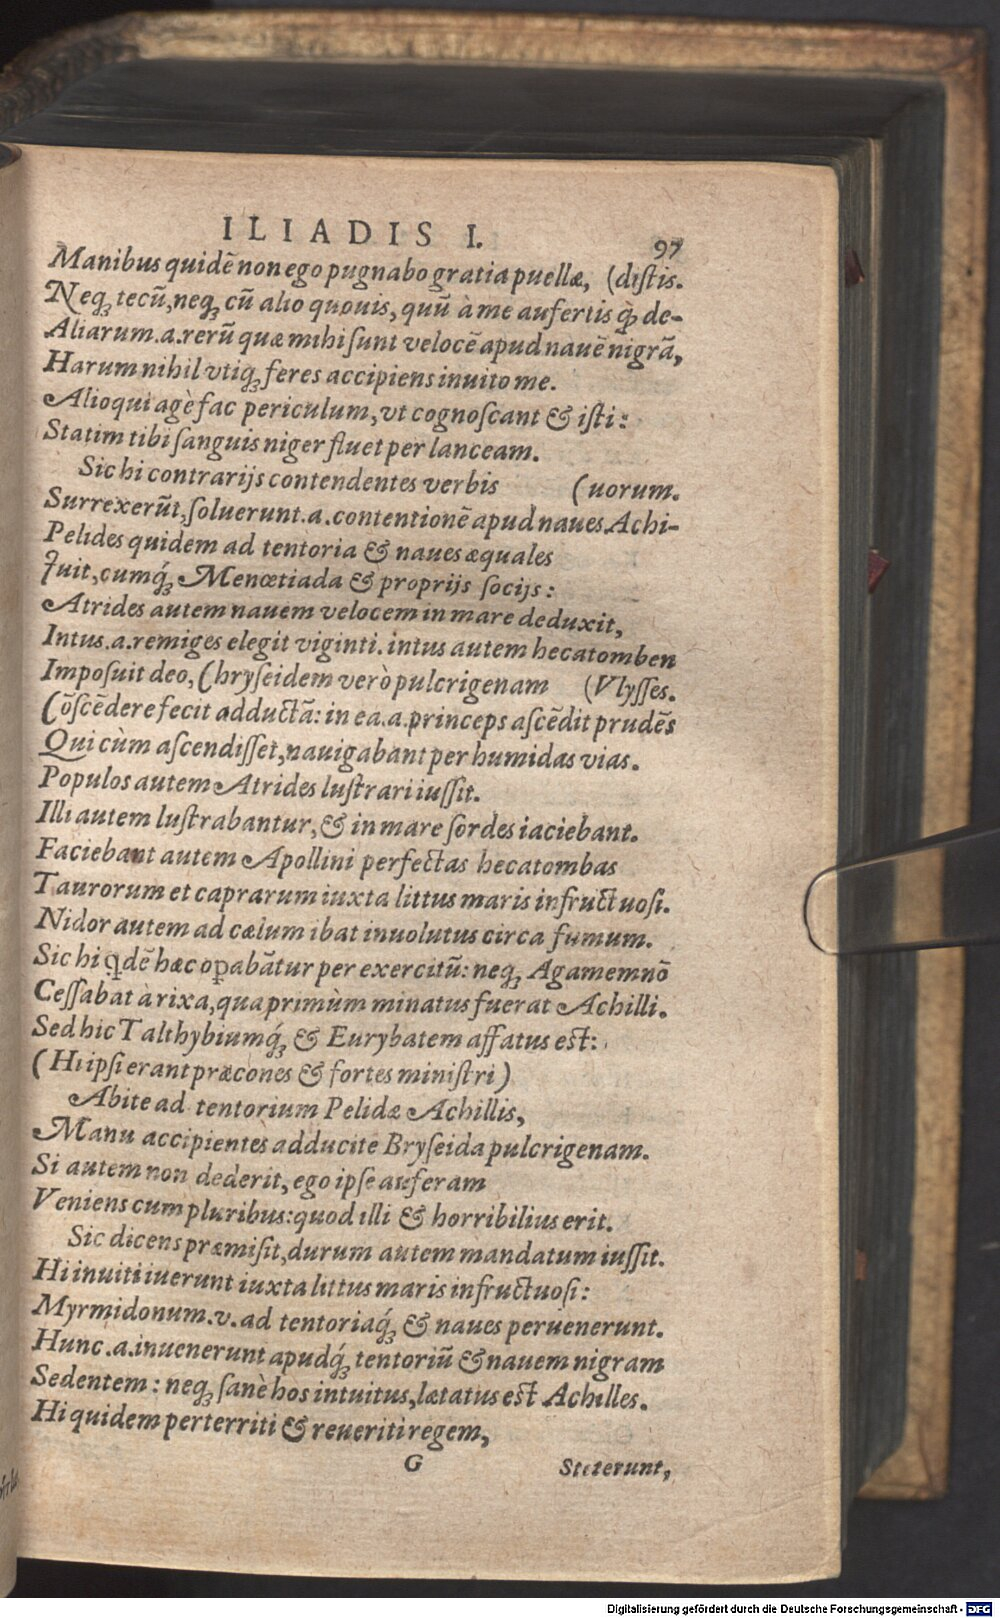 ILIADIS I. 97
Manibus quidē non ego pugnabo gratia puellæ, (distis.
Neq; tecū, neq; cū alio quouis, quū à me aufertis q̃ de-
Aliarum .a. rerū quæ mihi sunt velocē apud nauē nigrā,
Harum nihil vtiq; feres accipiens inuito me.
Alioqui agè fac periculum, vt cognoscant & isti:
Statim tibi sanguis niger fluet per lanceam.
Sic hi contrarijs contendentes verbis (uorum.
Surrexerūt, soluerunt .a. contentionē apud naues Achi-
Pelides quidem ad tentoria & naues æquales
Iuit, cumq́; Menœtiada & proprijs socijs:
Atrides autem nauem velocem in mare deduxit,
Intus .a. remiges elegit viginti. intus autem hecatomben
Imposuit deo, Chryseidem verò pulcrigenam (Vlysses.
Cōscēdere fecit adductā: in ea .a. princeps ascēdit prudēs
Qui cùm ascendisset, nauigabant per humidas vias.
Populos autem Atrides lustrari iussit.
Illi autem lustrabantur, & in mare sordes iaciebant.
Faciebant autem Apollini perfectas hecatombas
Taurorum et caprarum iuxta littus maris infructuosi.
Nidor autem ad cælum ibat inuolutus circa fumum.
Sic hi qdē hæc oꝑabātur per exercitū: neq; Agamemnō
Cessabat à rixa, qua primùm minatus fuerat Achilli.
Sed hic Talthybiumq́; & Eurybatem affatus est:
(Hi ipsi erant præcones & fortes ministri)
Abite ad tentorium Pelidæ Achillis,
Manu accipientes adducite Bryseida pulcrigenam.
Si autem non dederit, ego ipse auferam
Veniens cum pluribus: quod illi & horribilius erit.
Sic dicens præmisit, durum autem mandatum iussit.
Hi inuiti iuerunt iuxta littus maris infructuosi:
Myrmidonum .v. ad tentoriaq́; & naues peruenerunt.
Hunc .a. inuenerunt apudq́; tentoriū & nauem nigram
Sedentem: neq; sanè hos intuitus, lætatus est Achilles.
Hi quidem perterriti & reueriti regem,
G Steterunt,
Digitalisierung gefördert durch die Deutsche Forschungsgemeinschaft - DFG